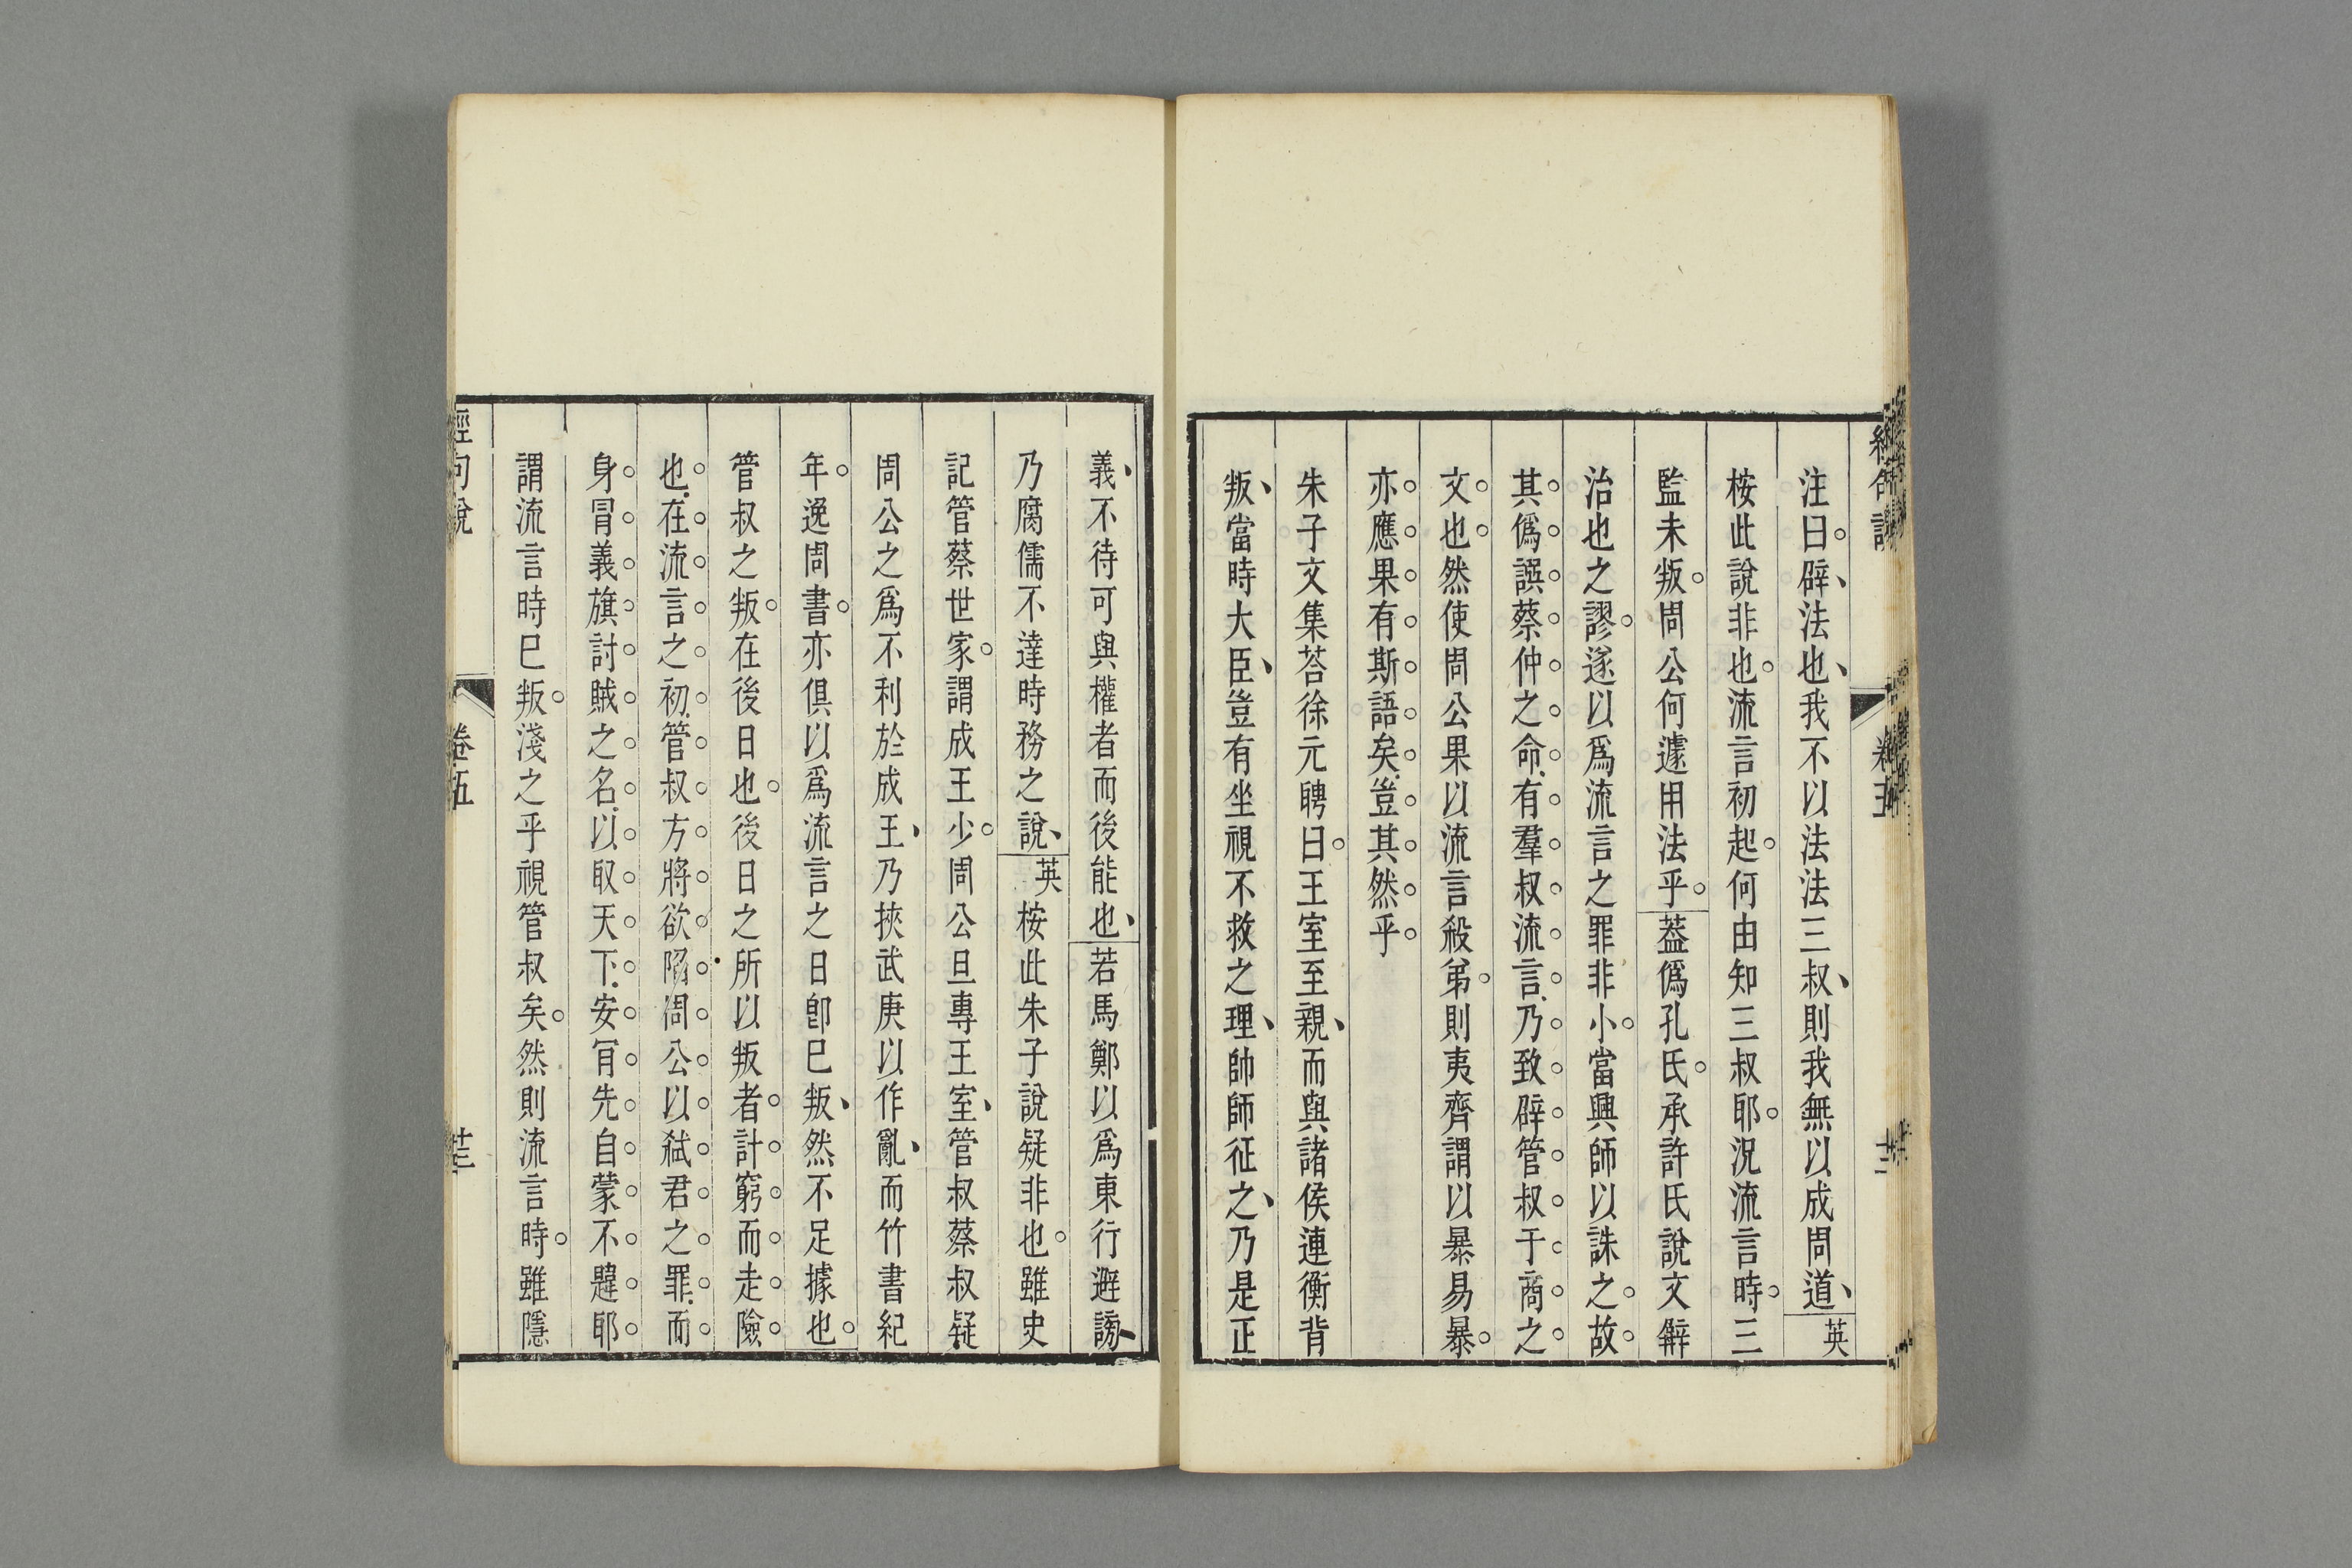 注曰辟法也我不以法法三叔則我無以成周道英
桉此說非也流言初起何由知三叔耶況流言時三
監未叛周公何遽用法乎葢僞孔氏承許氏說文𨐨
治也之謬遂以爲流言之罪非小當興師以誅之故
其僞誤蔡仲之命有羣叔流言乃致辟管叔于商之
文也然使周公果以流言殺弟則夷齊謂以暴易暴
亦應果有斯語矣豈其然乎
朱子文集荅徐元聘曰王室至親而與諸侯連衡背
叛當時大臣豈有坐視不救之理帥師征之乃是正
義不待可與權者而後能也若馬鄭以爲東行避謗
乃腐儒不達時務之說英桉此朱子說疑非也雖史
記管蔡世家謂成王少周公旦專王室管叔蔡叔疑
周公之爲不利於成王乃挾武庚以作亂而竹書紀
年逸周書亦俱以爲流言之日卽巳叛然不足據也
管叔之叛在後日也後日之所以叛者計窮而走險
也在流言之初管叔方將欲陷周公以弑君之罪而
身冒義旗討賊之名以取天下安肎先自蒙不韙耶
謂流言時巳叛淺之乎視管叔矣然則流言時雖隱
經句說
卷五